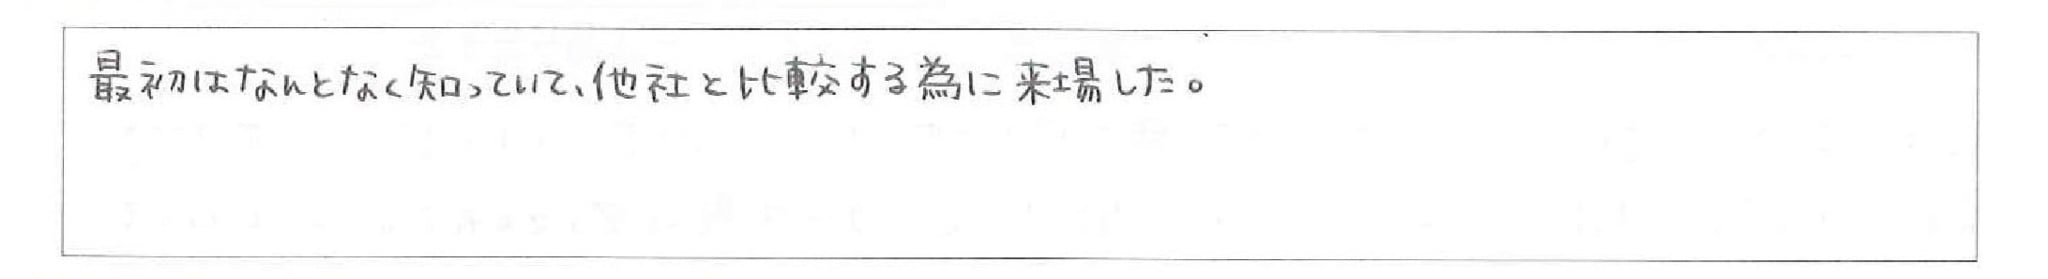 最初はなんとなく知っていて、他社と比較する為に来場した。